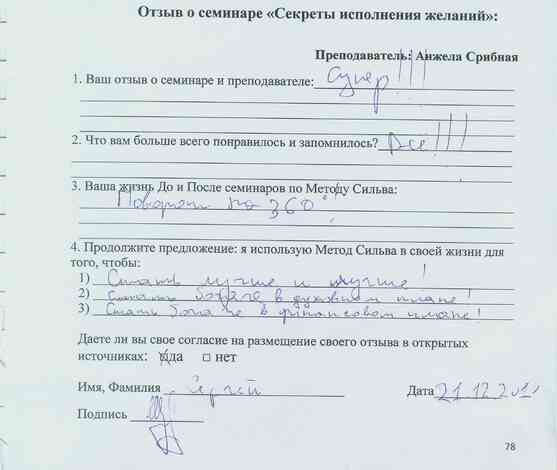 Отзыв о семинаре «Секреты исполнения желаний»:
Преподаватель: Анжела Срибная
1. Ваш отзыв о семинаре и преподавателе: Супер!!!
2. Что вам больше всего понравилось и запомнилось? Все!!!
3. Ваша жизнь До и После семинаров по Методу Сильва:
Поворот на 360°!
4. Продолжите предложение: я использую Метод Сильва в своей жизни для
того, чтобы:
1) Стать лучше и лучше!
2) Стать богаче в духовном плане!
3) Стать богаче в финансовом плане!
Даете ли вы свое согласие на размещение своего отзыва в открытых
источниках: да □ нет
Имя, Фамилия Сергей
Дата 21.12.201
Подпись
78